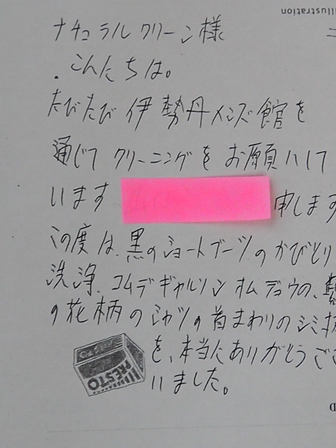 llustration
ナチュラルクリーン様
.こんたちは。
たびたび 伊勢丹メンズ館を
通じて クリーニングを お願いして
います 申します
この度は、黒のショートブーツのかびとり
洗浄、コムデギャルソン オム デュウの、
の花柄のシャツの首まわりのシミ抜
を、本当にありがとうござ
いました。
PRESTO